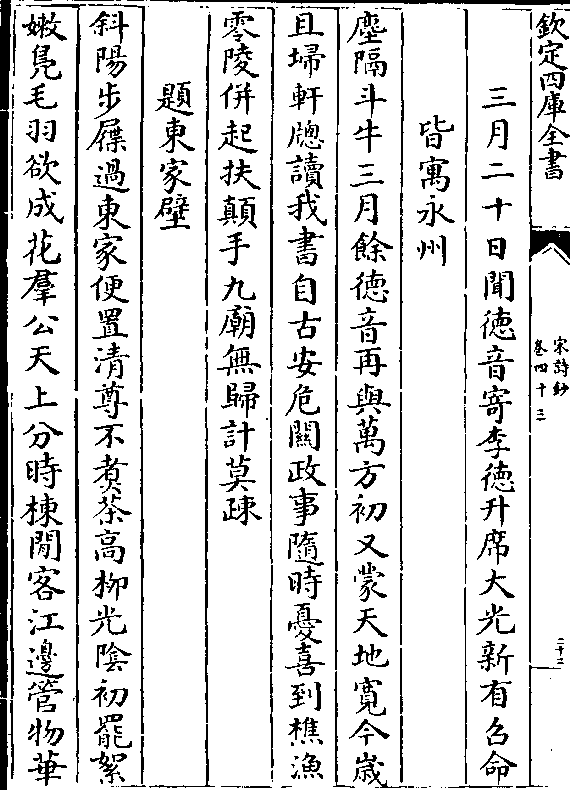 欽定四庫全書
宋詩鈔
卷四十三
三月二十日聞徳音寄李徳升席大光新有召命
皆寓永州
塵隔斗牛三月餘徳音再與萬方初又蒙天地寛今歲
且埽軒牕讀我書自古安危關政事隨時憂喜到樵漁
零陵併起扶顛手九廟無歸計莫疎
題東家壁
斜陽步屧過東家便置清尊不煑茶高柳光陰初罷絮
嫩鳬毛羽欲成花羣公天上分時棟閒客江邊管物華